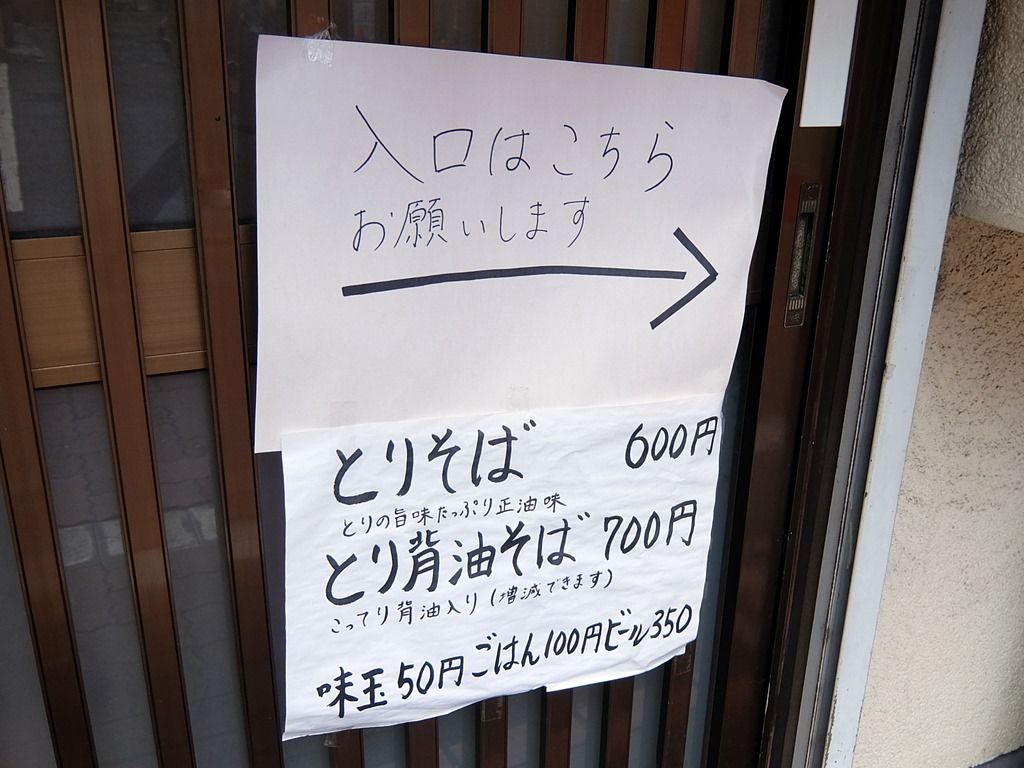 入口はこちら
お願いします
とりそば 600円
とりの旨味たっぷり正油味
とり背油そば 700円
こってり背油入り(増減できます)
味玉50円ごはん100円ビール350